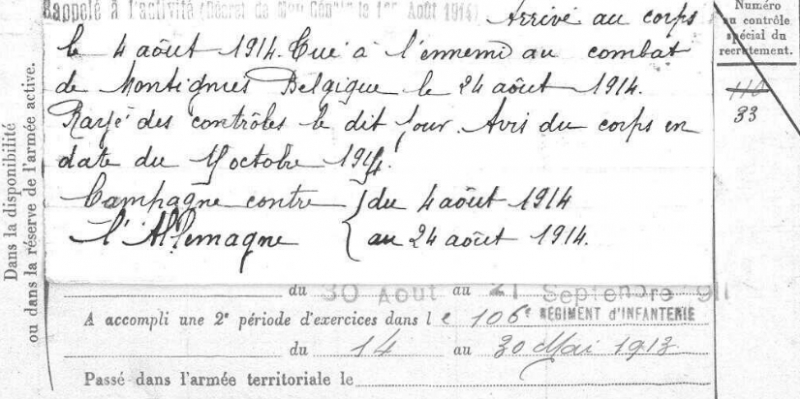 Rappelé à l'activité (Décret de Mon Génle le 1er Août 1914) Arrivé au corps
le 4 août 1914. Tué à l'ennemi au combat
de Montignies Belgique le 24 août 1914.
Rayé des contrôles le dit jour. Avis du corps en
date du octobre 1914.
Campagne contre } du 4 août 1914
l'Allemagne { au 24 août 1914.
du 30 Août au 21 Septembre 911
A accompli une 2e période d'exercices dans le 106e RÉGIMENT d'INFANTERIE
du 14 au 30 Mai 1913
Passé dans l'armée territoriale le
Dans la disponibilité
ou dans la réserve de l'armée active.
Numéro
au contrôle
spécial du
recrutement.
110
33